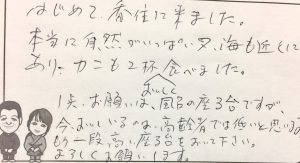 はじめて、香住に来ました。
本当に自然がいっぱい又、海も近くに
あり、カニも2杯食べました。
おいしく
1点、お願いは、風呂の座る台ですが、
今、おいしているのは、高齢者では低いと思いるので
もう一段、高い座る台をおいて下さい。
よろしくお願いします。